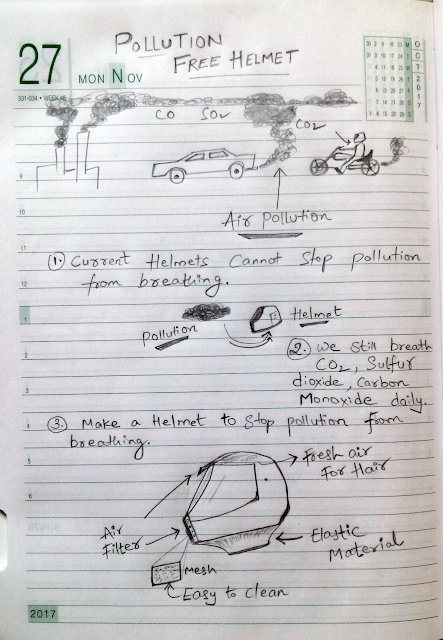 POLLUTION
FREE HELMET
27
MON NOV
331-034 • WEEK 48
OCT 2017
CO SO2
CO2
9
10
Air Pollution
11
1. Current Helmets Cannot Stop pollution
12
from breathing.
1
Helmet
Pollution
2
2. We still breath
CO2, Sulfur
3
dioxide, Carbon
Monoxide daily.
4
3. Make a Helmet to Stop pollution from
breathing.
5
Fresh air
For Hair
6
Air
Filter
Elastic
Material
mesh
Easy to clean
2017